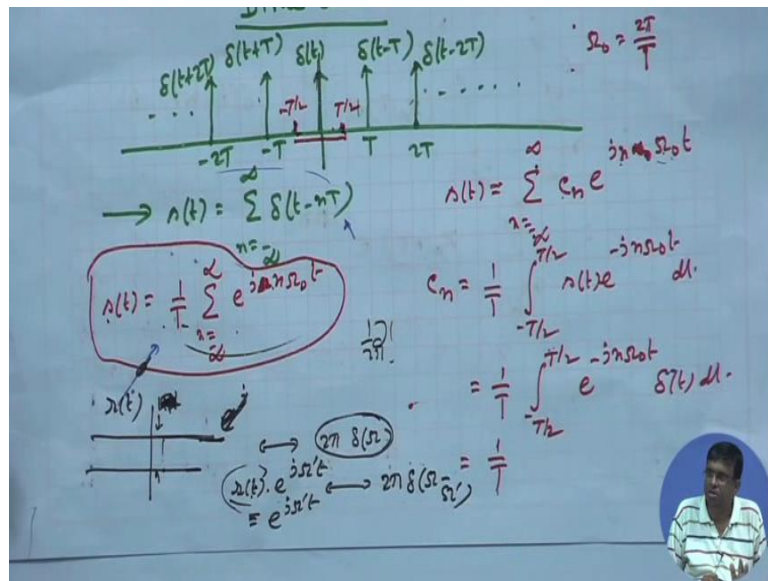 δ(t+2T) δ(t+T) δ(t) δ(t-T) δ(t-2T)
Ω₀ = 2T/T
-T/2 T/2
-2T -T T 2T
→ s(t) = ∑_{n=-∞}^{∞} δ(t-nT)
s(t) = 1/T ∑_{n=-∞}^{∞} e^{jnΩ₀t}
s(t) = ∑_{n=-∞}^{∞} c_n e^{jnΩ₀t}
c_n = 1/T ∫_{-T/2}^{T/2} s(t) e^{-jnΩ₀t} dt.
= 1/T ∫_{-T/2}^{T/2} e^{-jnΩ₀t} δ(t) dt.
= 1/T
x(t)
↔ 2π δ(Ω)
x(t). e^{jΩ't} ↔ 2π δ(Ω-Ω')
= e^{jΩ't}